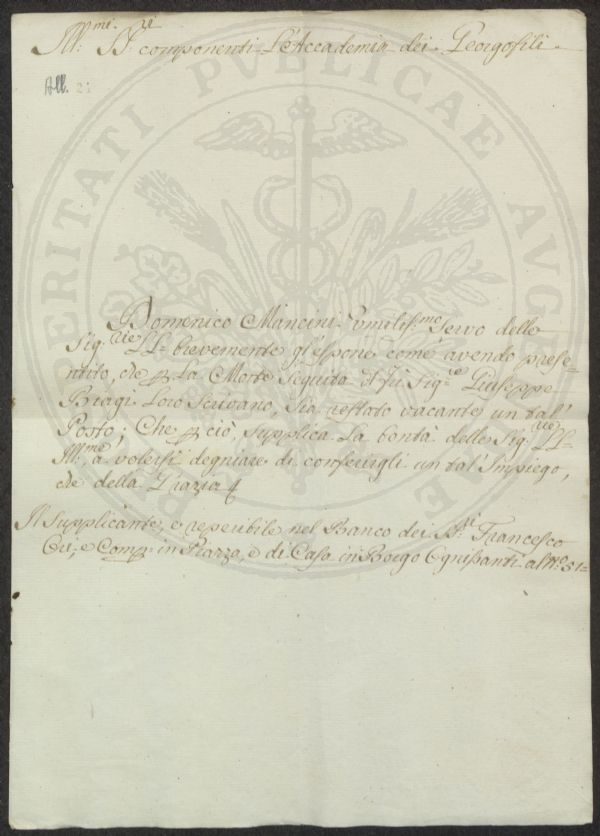 Ill:mi SS:ri componenti L'Accademia dei Georgofili
All. 21
PROSPERITATI PUBLICAE AUGENDAE
Domenico Mancini Umiliss:mo Servo delle
Sig:rie LL: brevemente gl'espone come avendo prese=
ntito, che p La Morte Seguita d Fù Sig:re Giuseppe
Biagi Loro Scrivano, Sia restato vacante un tal'
Posto; Che p ciò, supplica La bontà delle Sig:rie LL=
Ill:me, a volersi degniare di conferirgli un tal'Impiego,
che della Grazia
Il Supplicante, e reperibile nel Banco dei SS:ri Francesco
Ori, e Comp: in Piazza, e di Casa in Borgo Ognissanti al N:o 51=